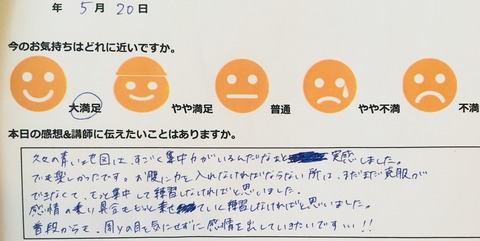 年 5月 20日
今のお気持ちはどれに近いですか。
大満足 やや満足 普通 やや不満 不満
本日の感想&講師に伝えたいことはありますか。
久々の青い地図は、すごく集中力がいるんだなぁと 実感しました。
でも楽しかったです。お腹に力を入れなければならない所は、まだまだ克服が
できなくて、もっと集中して練習しなければと思いました。
感情の乗り具合をもっと乗せ ていく練習しなければと思いました。
普段からも、周りの目を気にせずに感情を出していきたいです…!!